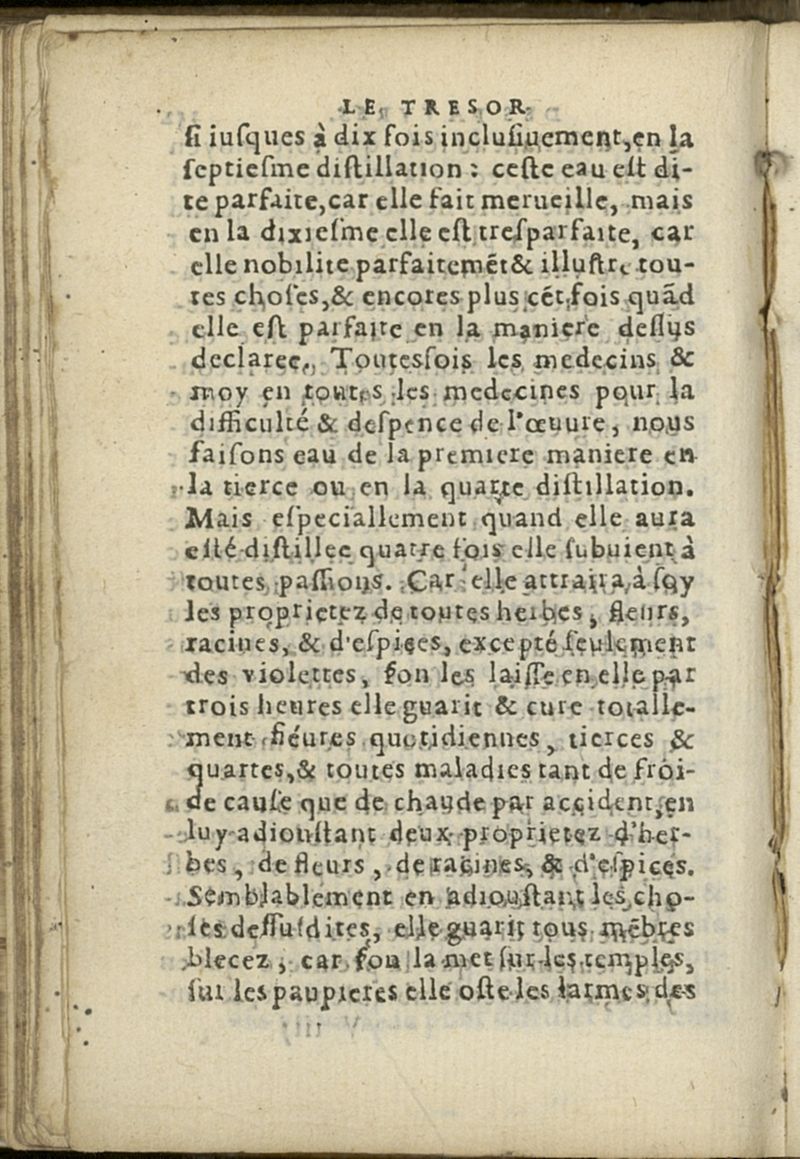 LE TRESOR
ſi iuſques à dix fois incluſiuement, en la
ſeptieſme diſtillation : ceſte eau eſt di-
te parfaite, car elle fait merueille, mais
en la dixieſme elle eſt treſparfaite, car
elle nobilite parfaitemẽt & illuſtre tou-
tes choſes, & encores plus cẽt fois quãd
elle eſt parfaite en la maniere deſſus
declaree. Toutesfois les medecins &
moy en toutes les medecines pour la
difficulté & deſpence de l'œuure, nous
faiſons eau de la premiere maniere en
la tierce ou en la quarte diſtillation.
Mais eſpeciallement quand elle aura
eſté diſtillee quatre fois elle ſubuient à
toutes paſſions. Car elle attraira à ſoy
les proprietez de toutes herbes, fleurs,
racines, & d'eſpices, excepté ſeulement
des violettes, ſon les laiſſe en elle par
trois heures elle guarit & cure totalle-
ment fiéures quotidiennes, tierces &
quartes, & toutes maladies tant de froi-
de cauſe que de chaude par accident, en
luy adiouſtant deux proprietez d'her-
bes, de fleurs, de racines, & d'eſpices.
Semblablement en adiouſtant les cho-
ſes deſſuſdites, elle guarit tous mẽbres
blecez, car ſou la met ſur les temples,
ſur les paupieres elle oſte les larmes des